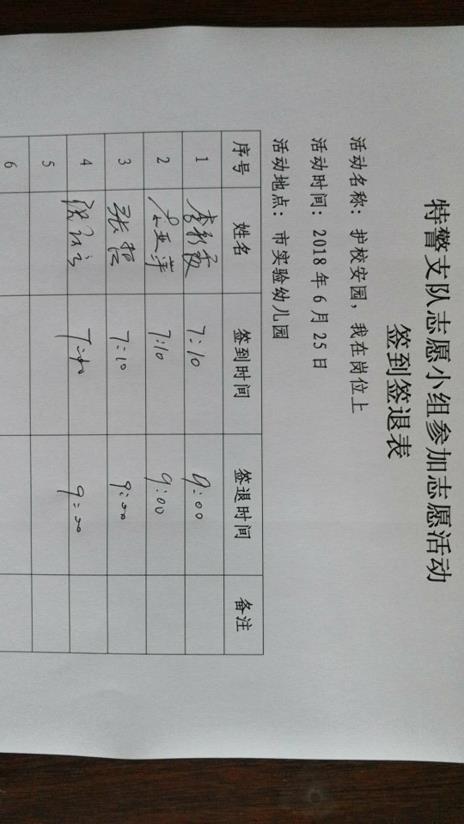 特警支队志愿小组参加志愿活动
签到签退表
活动名称：护校安园，我在岗位上
活动时间：2018年6月25日
活动地点：市实验幼儿园
序号 姓名 签到时间 签退时间 备注
1 李彩霞 7:10 9:00
2 7:10 9:00
3 张 7:10 9:00
4 7:10 9:00
5
6